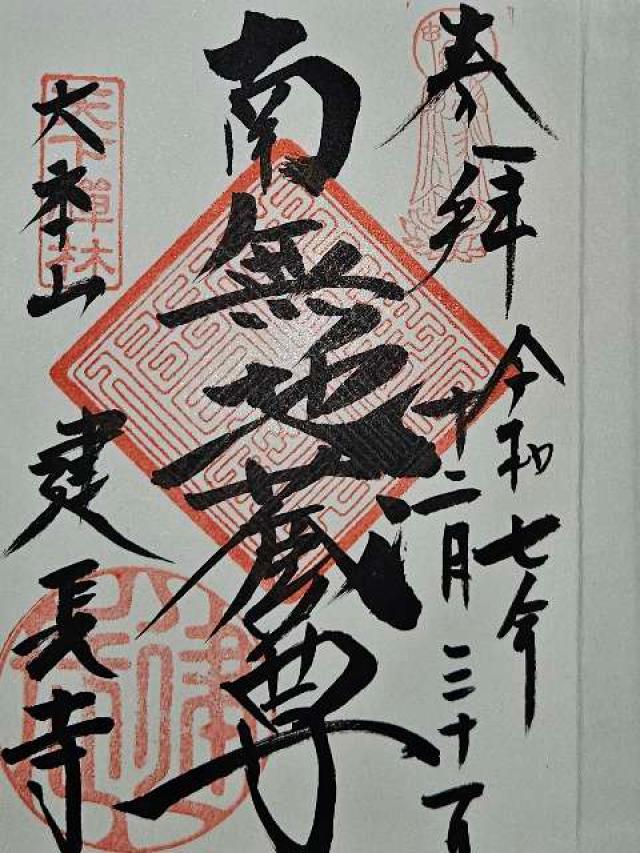 奉拝
令和七年
十二月三十一日
南無地蔵尊
大本山
建長寺
天下禅林